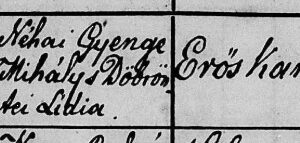 Néhai Gyenge
Mihály s Döbrön
tei Lidia.
Erős Kar